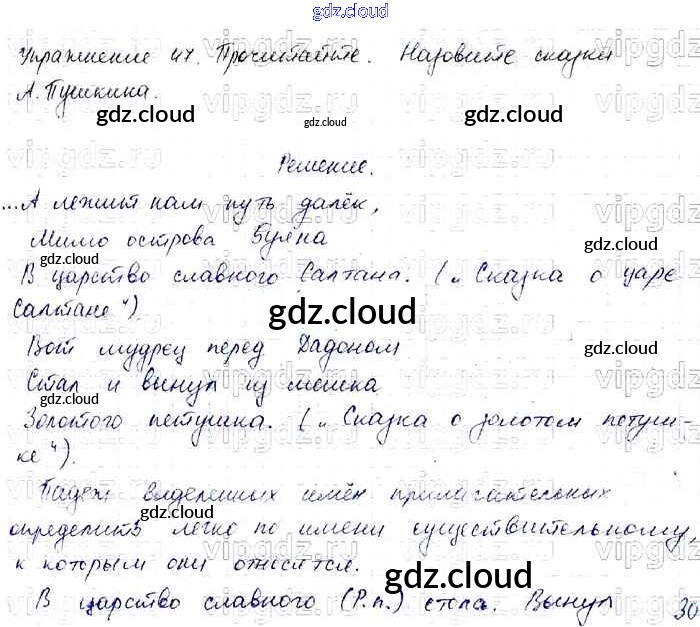 gdz.cloud
Упражнение 47. Прочитайте. Назовите сказки
А. Пушкина.
Решение.
...А лежит нам путь далёк,
Мимо острова Буяна
В царство славного Салтана. („Сказка о царе
Салтане“)
Вот мудрец перед Дадоном
Стал и вынул из мешка
Золотого петушка. („Сказка о золотом петуш-
ке“).
Падеж выделенных имён прилагательных
определить легко по имени существительному,
к которым они относятся.
В царство славного (Р.п.) стола. Вынул зо